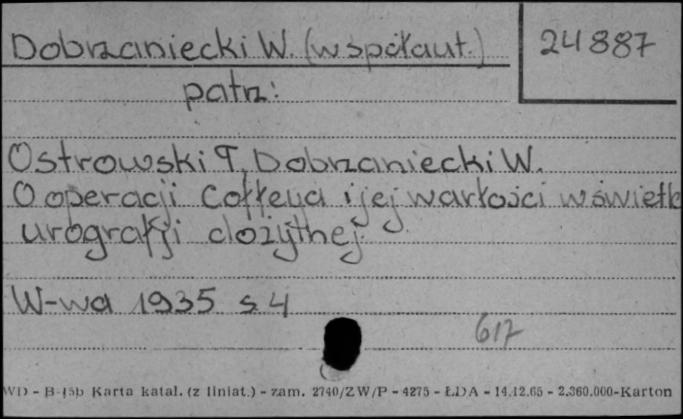 Dobrzaniecki W. (współaut.)
24887
patrz:
Ostrowski T, Dobrzaniecki W.
O operacji Coffeya i jej wartości w świetle
urografji dożylnej.
W-wa 1935 s 4
617
WD - B-15b Karta katal. (z liniat.) - zam. 2740/ZW/P - 4275 - ŁDA - 14.12.65 - 2.360.000-Karton